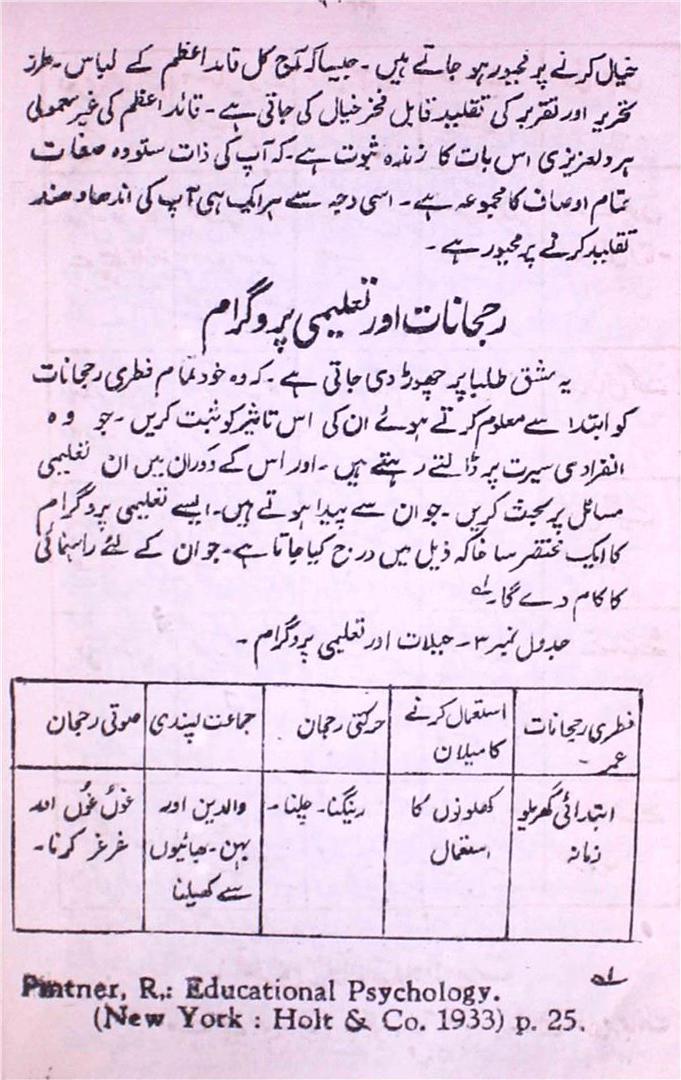 خیال کرنے پر مجبور ہو جاتے ہیں ۔ جیسا کہ آج کل قائد اعظم کے لباس ۔ طرز
تحریر اور تقریر کی تقلید قابل فخر خیال کی جاتی ہے ۔ قائد اعظم کی غیر معمولی
ہر دلعزیزی اس بات کا زندہ ثبوت ہے ۔ کہ آپ کی ذات ستودہ صفات
تمام اوصاف کا مجموعہ ہے ۔ اسی وجہ سے ہر ایک ہی آپ کی اندھا دھند
تقلید کرنے پر مجبور ہے ۔
رجحانات اور تعلیمی پروگرام
یہ مشق طلبا پر چھوڑ دی جاتی ہے ۔ کہ وہ خود تمام فطری رجحانات
کو ابتدا سے معلوم کرتے ہوئے ان کی اس تاثیر کو ثبت کریں ۔ جو وہ
انفرادی سیرت پر ڈالتے رہتے ہیں ۔ اور اس کے دوران میں ان تعلیمی
مسائل پر بحث کریں ۔ جو ان سے پیدا ہوتے ہیں ۔ ایسے تعلیمی پروگرام
کا ایک مختصر سا خاکہ ذیل میں درج کیا جاتا ہے ۔ جو ان کے لئے راہنمائی
کا کام دے گا ۔ لہ
جدول نمبر ۳ ۔ جبلات اور تعلیمی پروگرام ۔
فطری رجحانات استعمال کرنے حرکتی رجحان جماعت پسندی صوتی رجحان
عمر ۔ کا میلان
ابتدائی گھریلو کھلونوں کا رینگنا ۔ چلنا ۔ والدین اور غوں غوں اور
زمانہ استعمال بہن ۔ بھائیوں غرغر کرنا ۔
سے کھیلنا
لہ
Pintner, R,: Educational Psychology.
(New York : Holt & Co. 1933) p. 25.